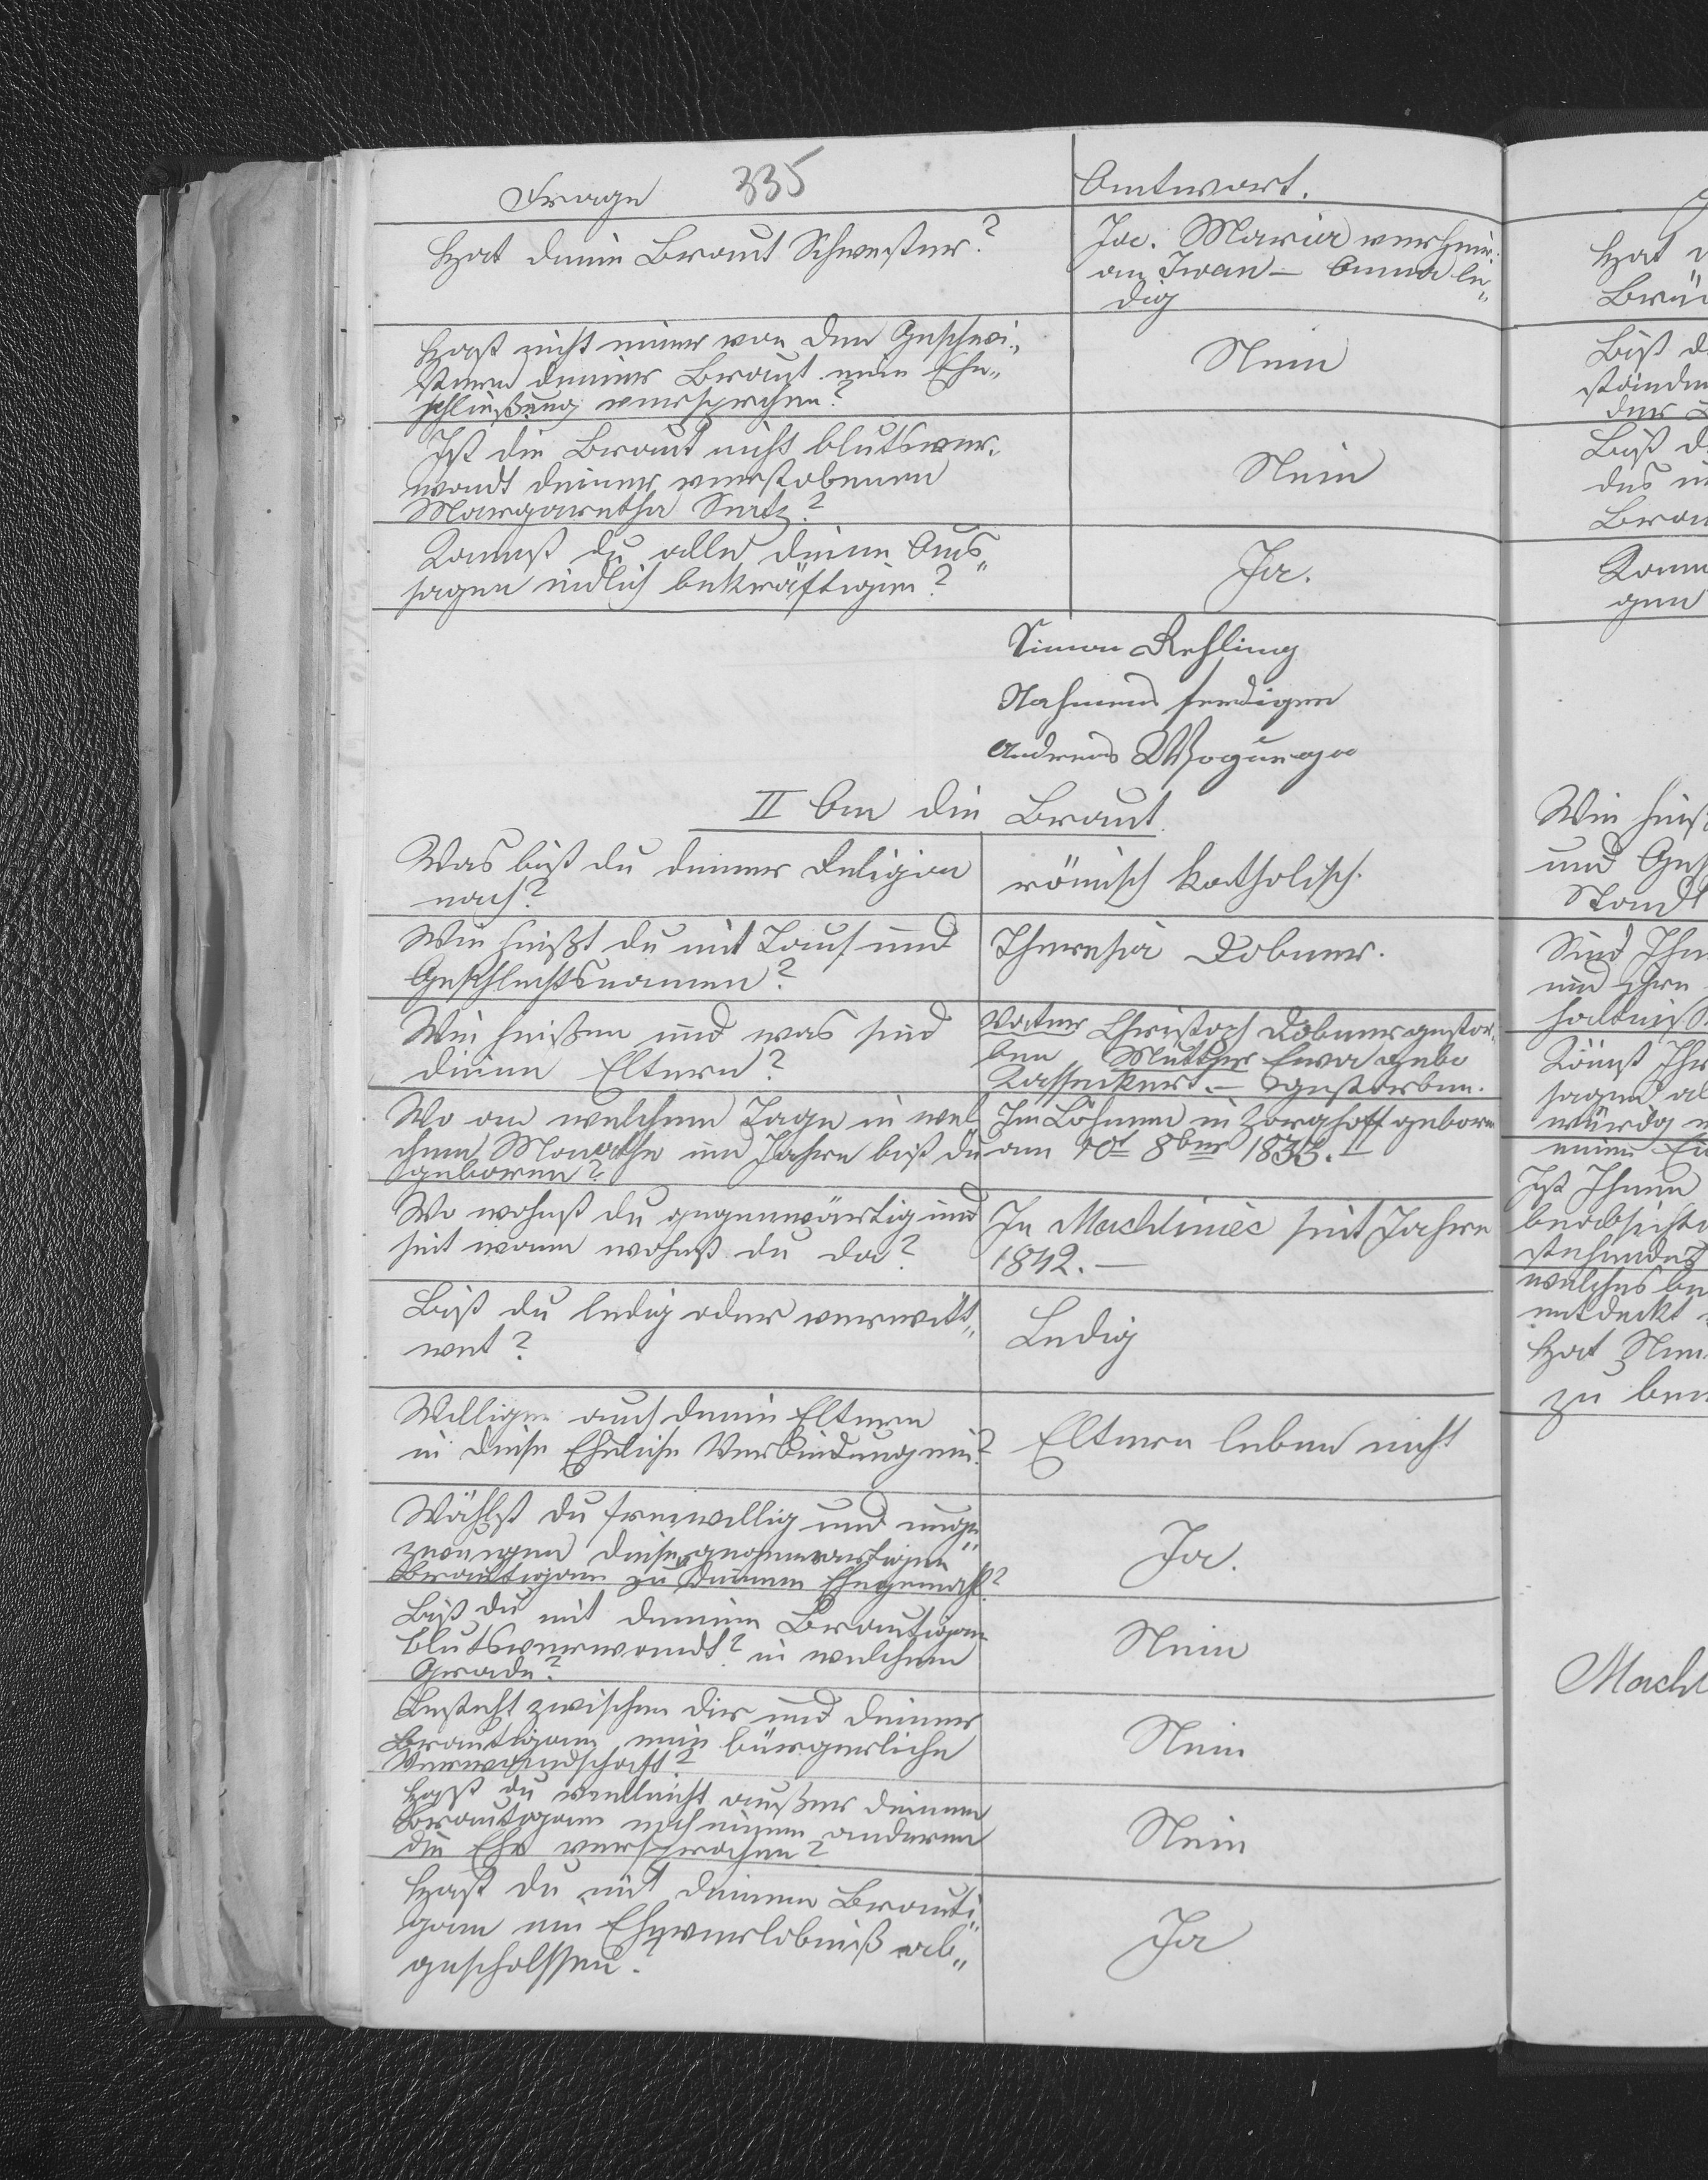 335
Frage
Antwort.
Hat deine Braut Schwester?
Ja. Maria verheir.
an Iwan – Anna le„
dig
Hast nicht einer von den Geschwi„
stern deiner Braut eine Ehe„
schließung versprochen?
Nein
Ist die Braut nicht blutsver„
wandt deiner verstobenen
Margaretha Seitz?
Nein
Kannst du alle deine Aus„
sagen eidlich bekräftigen?
Ja.
Simon Rehling
Nahmens
Andreas
II An die Braut
Was bist du deiner Religion
nach?
römisch katholisch.
Wie heißt du mit Tauf und
Geschlechtsnamen?
Theresia Dobner.
Wie heißen und was sind
deine Eltern?
Vater Christoph Dobner gestor„
ben Mutter Eva gebo
Kasseckert. – gestorben.
Wo an welchem Tage in wel
chem Monathe und Jahre bist du
geboren?
In Böhmen in Zorghoff geboren
am 10t 8ber 1833. –
Wo wohnst du gegenwärtig und
seit wann wohnst du da?
In Machliniec seit Jahre
1842. –
Bist du ledig oder verwitt„
wet?
Ledig
Willigen auch deine Eltern
in diese Eheliche Verbindung ein?
Eltern leben nicht
Wählst du freiwillig und unge„
zwungen diesen gegenwartigen
Brautigam zu deinem Ehegemahl?
Ja.
Bist du mit deinem Brautigam
blutsverwandt? in welchem
Grade?
Nein
Besteht zwischen dir und deiner
Brautigam eine bürgerliche
Verwandschaft?
Nein
Hast du vielleicht außer deinem
Brautigam noch einem anderen
die Ehe versprochen?
Nein
Hast du mit deinem Brauti„
gam ein Eheverlobniß ab„
gescholssen.
Ja
Hat
Brü
Bist d
stände
der
Bist d
des
Bra
Kann
gen
Wie heis
und Ges
Stand
Sind Ihn
und Ihre
haltniss
Könnt Ihr
sagen al
würdig
einem Ei
Ist Ihnen
beabsicht
stehendes
welches be
entdeckt
Hat Nie
zu be
Machl